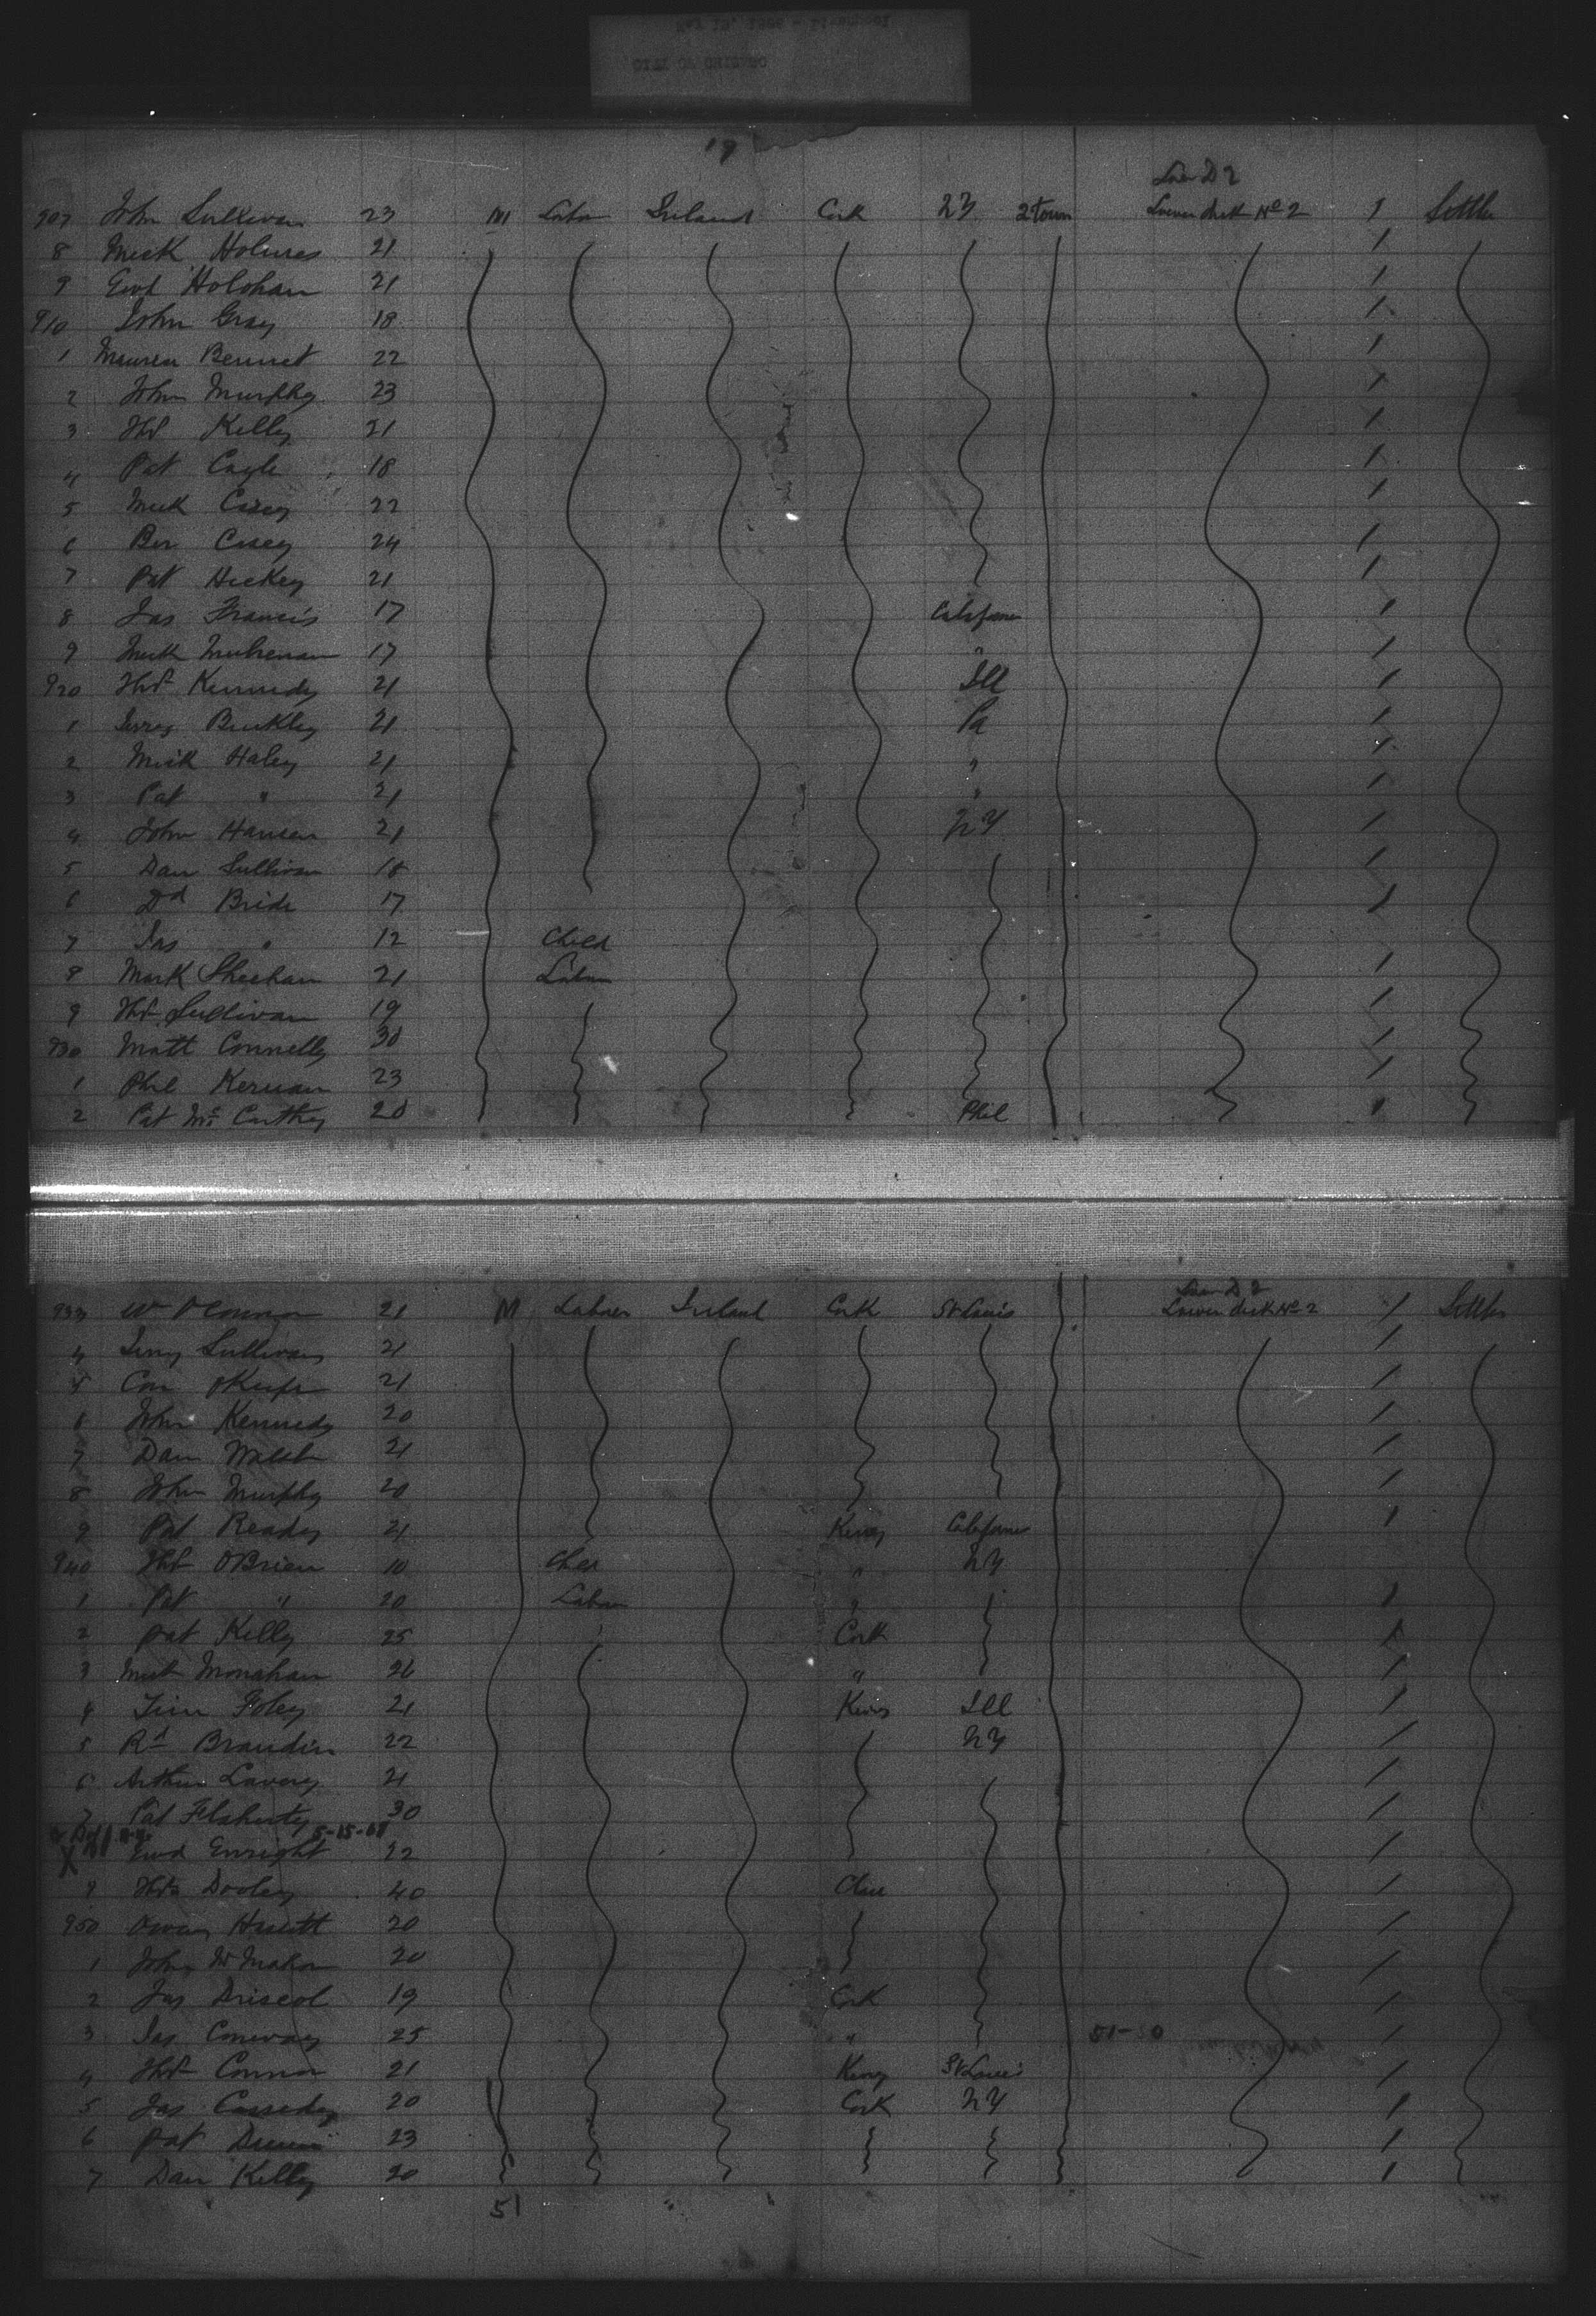 19
Lower D 2
907 John Sullivan 23 M Labor Ireland Cork NY 2 town Lower deck No 2 1 Settler
8 Mick Holmes 21 1
9 Ewd Holohan 21 1
910 John Gray 18 1
1 Bennet 22 1
2 John Murphy 23 1
3 Thos Kelly 21 1
4 Pat 18 1
5 Mick Casey 22 1
6 Casey 24 1
7 Pat Hickey 21 1
8 Jas Francis 17 California 1
9 Mick 17 " 1
920 Thos Kennedy 21 Ill 1
1 Jerry Buckley 21 Pa 1
2 Mick Haley 21 " 1
3 Pat " 21 " 1
4 John Hansen 21 NY 1
5 Dan Sullivan 18 1
6 Dd Bride 17 1
7 Jas " 12 Child
8 Mark Sheehan 21 Labor 1
9 Thos Sullivan 19 1
930 Matt Connelly 30 1
1 Phil Kernan 23 1
2 Pat McCarthy 20 Phil 1
Lower D 2
933 Wm O'Connor 21 M Laborer Ireland Cork St Louis Lower deck No 2 1 Settler
4 Jerry Sullivan 21 1
5 Con O'Keefe 21 1
6 John Kennedy 20 1
7 Dan Walsh 21 1
8 John Murphy 20 1
9 Pat Ready 21 Kerry California 1
940 Thos O'Brien 10 Child " NY
1 Pat " 20 Labor " 1
2 Pat Kelly 25 Cork 1
3 Mick Monahan 26 " 1
4 Tim Foley 21 Kerry Ill 1
5 Rd 22 NY 1
6 Arthur Lavery 21 1
7 Pat Flaherty 30 1
5-15-08
X Ewd Enright 22 1
9 Thos Dooley 40 Clare 1
950 20 1
1 John McMahon 20 1
2 Jas Driscol 19 Cork 1
3 Jas Conway 25 " 51-50 1
4 Thos Connor 21 Kerry St Louis 1
5 Jas Cassedy 20 Cork NY 1
6 Pat 23 1
7 Dan Kelly 20 1
51